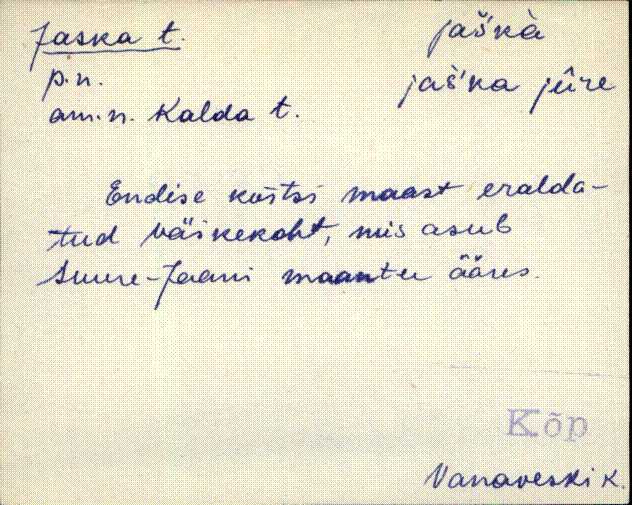 Jaska t.
jaška
p.n.
jaška jûre
am.n. Kalda t.
Endise kõrtsi maast eralda-
tud väikekoht, mis asub
Suure-Jaani maantee ääres.
Kõp
Vanaveski k.